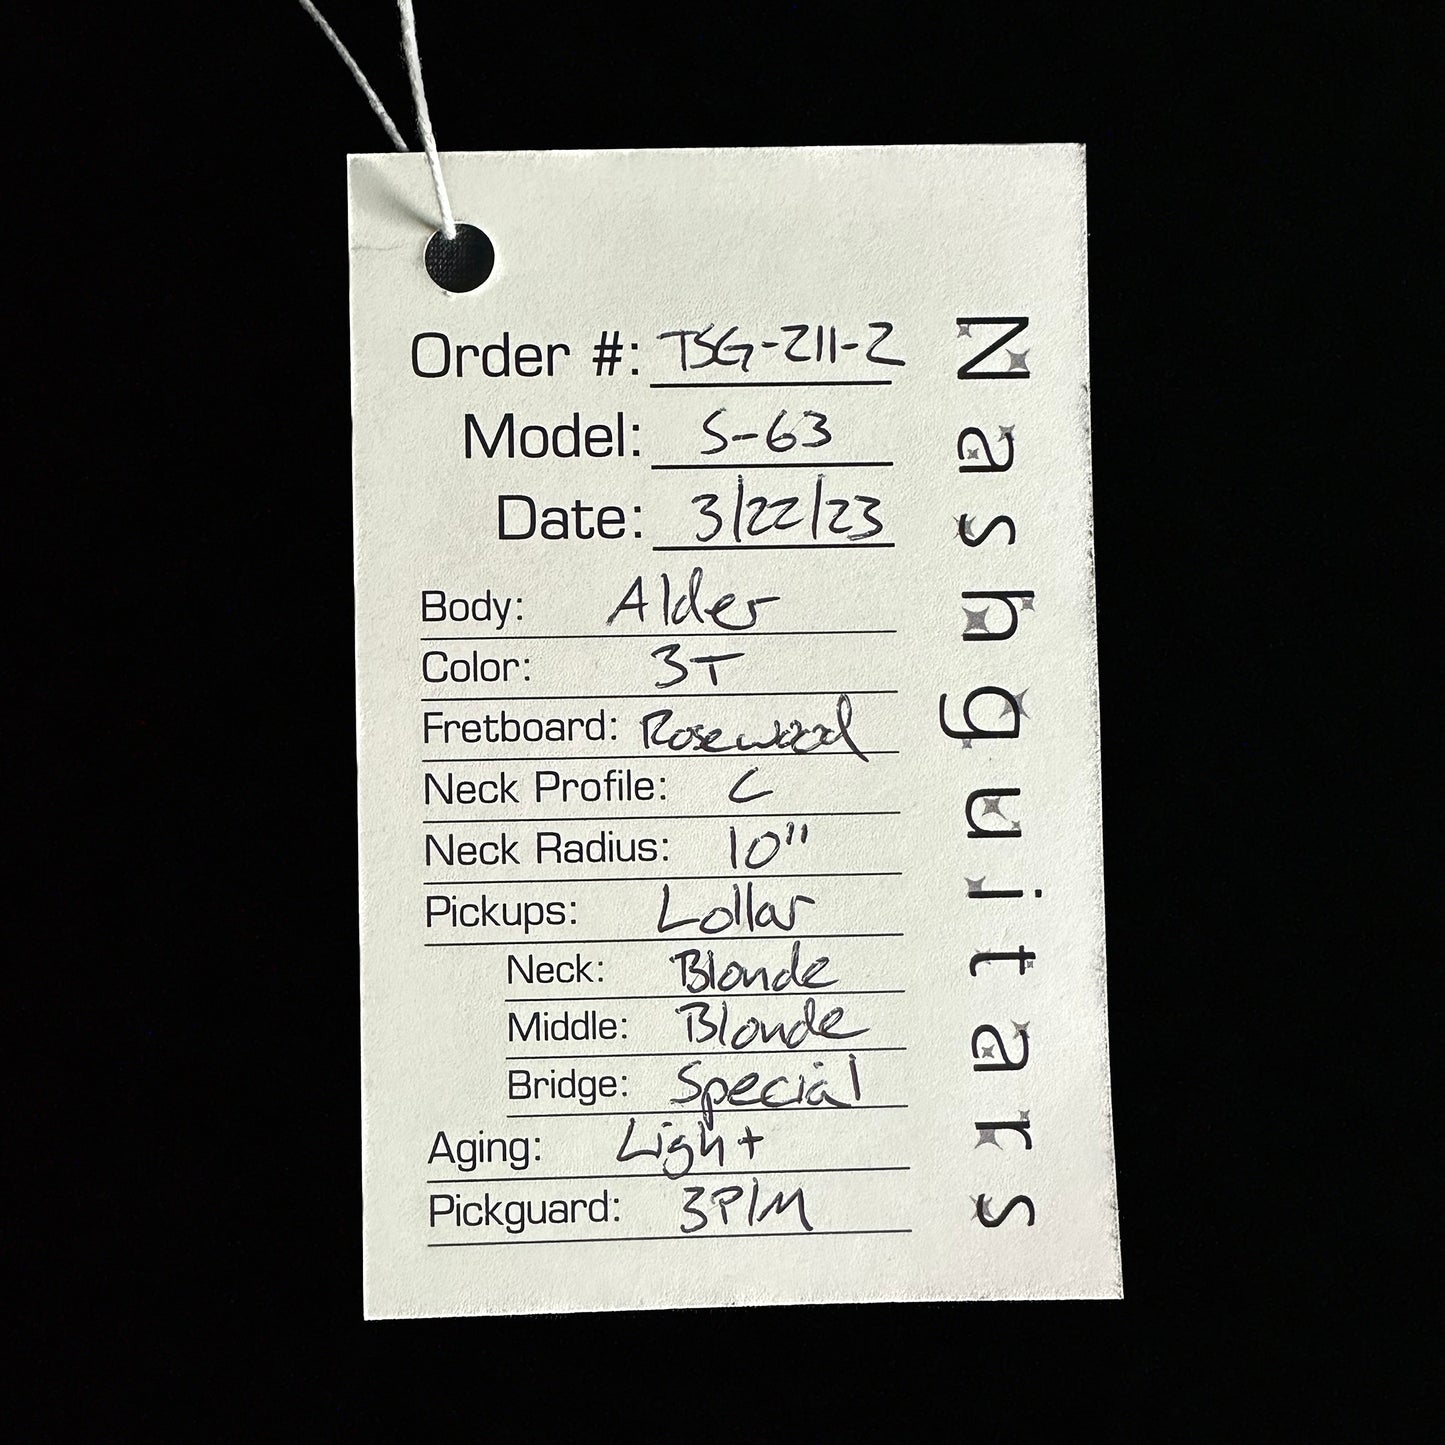 Order #: TSG-211-2
Model: S-63
Date: 3/22/23
Body: Alder
Color: 3T
Fretboard: Rosewood
Neck Profile: C
Neck Radius: 10"
Pickups: Lollar
Neck: Blonde
Middle: Blonde
Bridge: Special
Aging: Light
Pickguard: 3P/M
Nashguitars